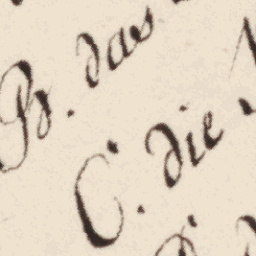 B. das
C. die